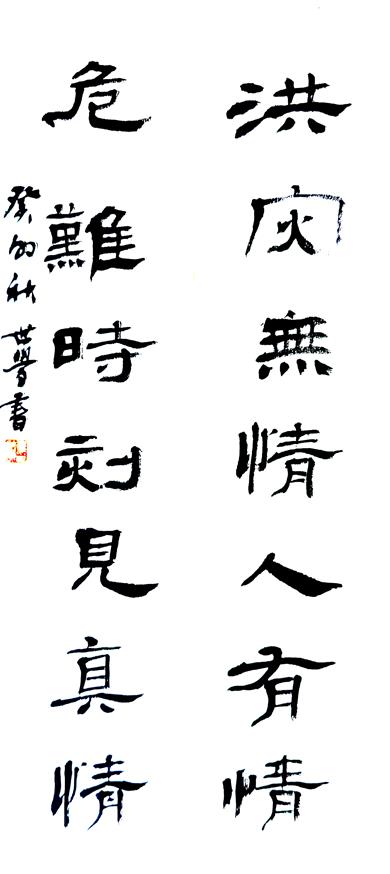 洪灾無情人有情
危難時刻見真情
癸卯秋 世學書